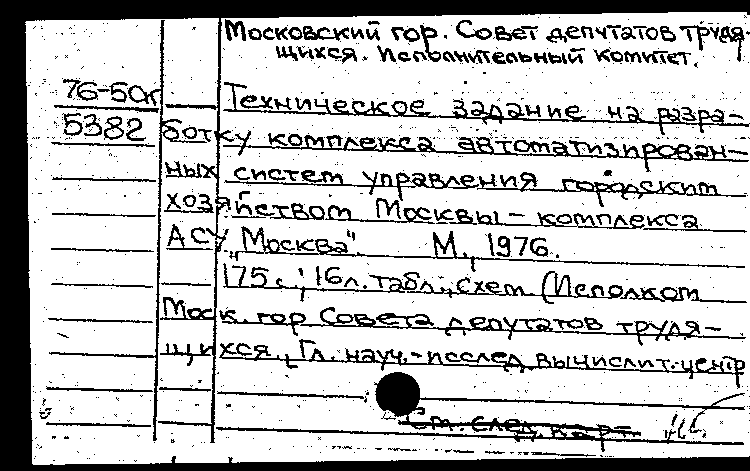 Московский гор. Совет депутатов трудя-
щихся. Исполнительный комитет.
76-50к Техническое задание на разра-
5382 ботку комплекса автоматизирован-
ных систем управления городским
хозяйством Москвы - комплекса
АСУ „Москва". М., 1976.
175 с.; 16 л. табл., схем (Исполком
Моск. гор Совета депутатов трудя-
щихся. Гл. науч.-исслед. вычислит. центр
См. след. карт.